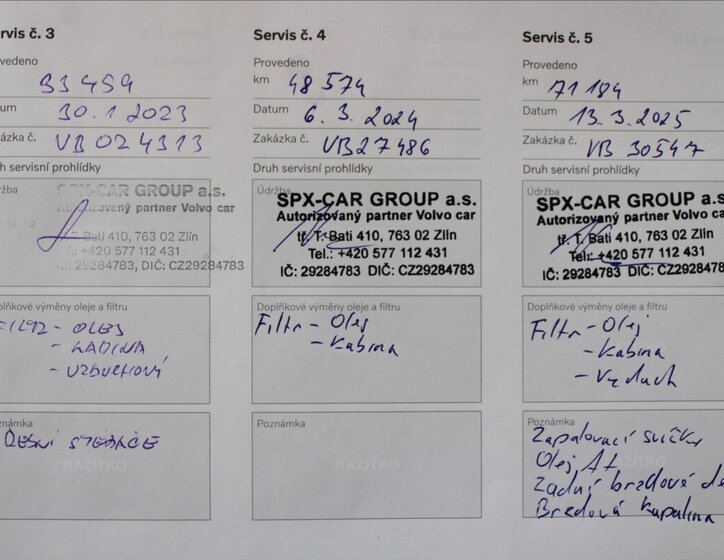 rvis č. 3
ovedeno
33 459
um 30.1 2023
kázka č. VB024313
ruh servisní prohlídky
držba
SPX-CAR GROUP a.s.
Autorizovaný partner Volvo car
tř. T. Bati 410, 763 02 Zlín
Tel.: +420 577 112 431
IČ: 29284783, DIČ: CZ29284783
plňkové výměny oleje a filtru
- OLEJ
- KABINA
- VZDUCHOVÝ
známka
RAZÍTKO
Servis č. 4
Provedeno
km 48 574
Datum 6. 3. 2024
Zakázka č. VB27486
Druh servisní prohlídky
Údržba
SPX-CAR GROUP a.s.
Autorizovaný partner Volvo car
tř. T. Bati 410, 763 02 Zlín
Tel.: +420 577 112 431
IČ: 29284783 DIČ: CZ29284783
Doplňkové výměny oleje a filtru
Filtr - Olej
- Kabina
Poznámka
RAZÍTKO
Servis č. 5
Provedeno
km 71 184
Datum 13. 3. 2025
Zakázka č. VB 30547
Druh servisní prohlídky
Údržba
SPX-CAR GROUP a.s
Autorizovaný partner Volvo ca
tř. T. Bati 410, 763 02 Zlín
Tel.: +420 577 112 431
IČ: 29284783 DIČ: CZ2928478
Doplňkové výměny oleje a filtru
Filtr - Olej
- Kabina
- Vzduch
Poznámka
Zapalovací svíčky
Olej AT
Zadní brzdové de
Brzdová kapalina
RAZÍTKO